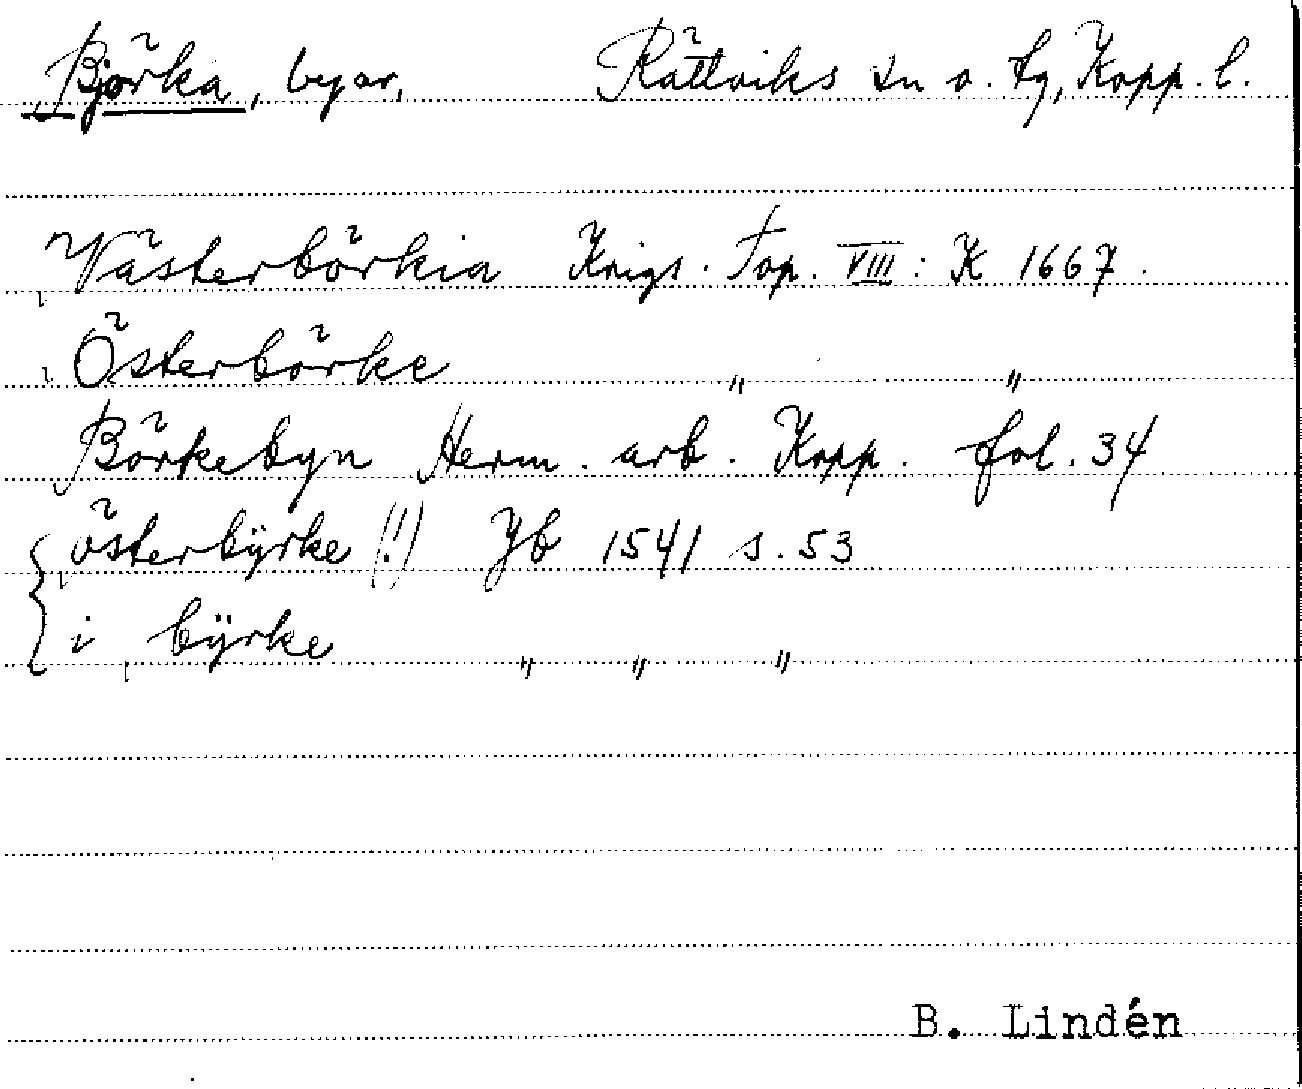 Björka, byar, Rättviks sn o. tg, Kopp. l.
Västerbörkia Krigs. Top. VIII: K 1667.
Österbörke " "
Börkebyn Herm. arb. Kopp. fol. 34
{ österbÿrke (!) Jb 1541 s. 53
i bÿrke " " "
B. Lindén